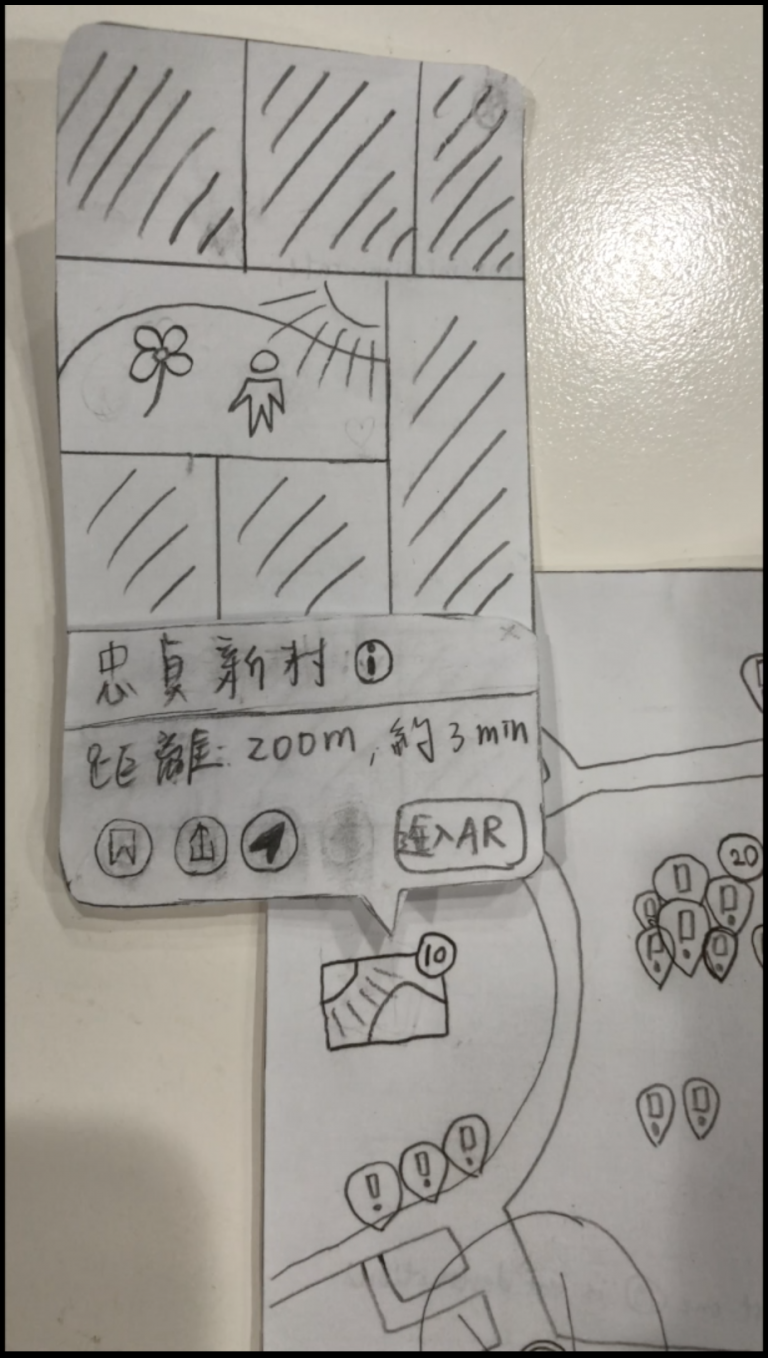 忠貞新村 i
距離: 200m, 約3min
進入AR
20
10